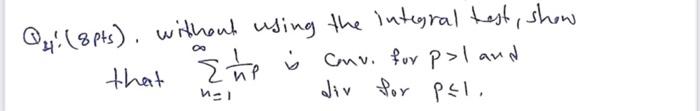 Q4: (8pts). without using the integral test, show
that ∞∑n=1 1/n^p is conv. for p>1 and
div for p≤1.